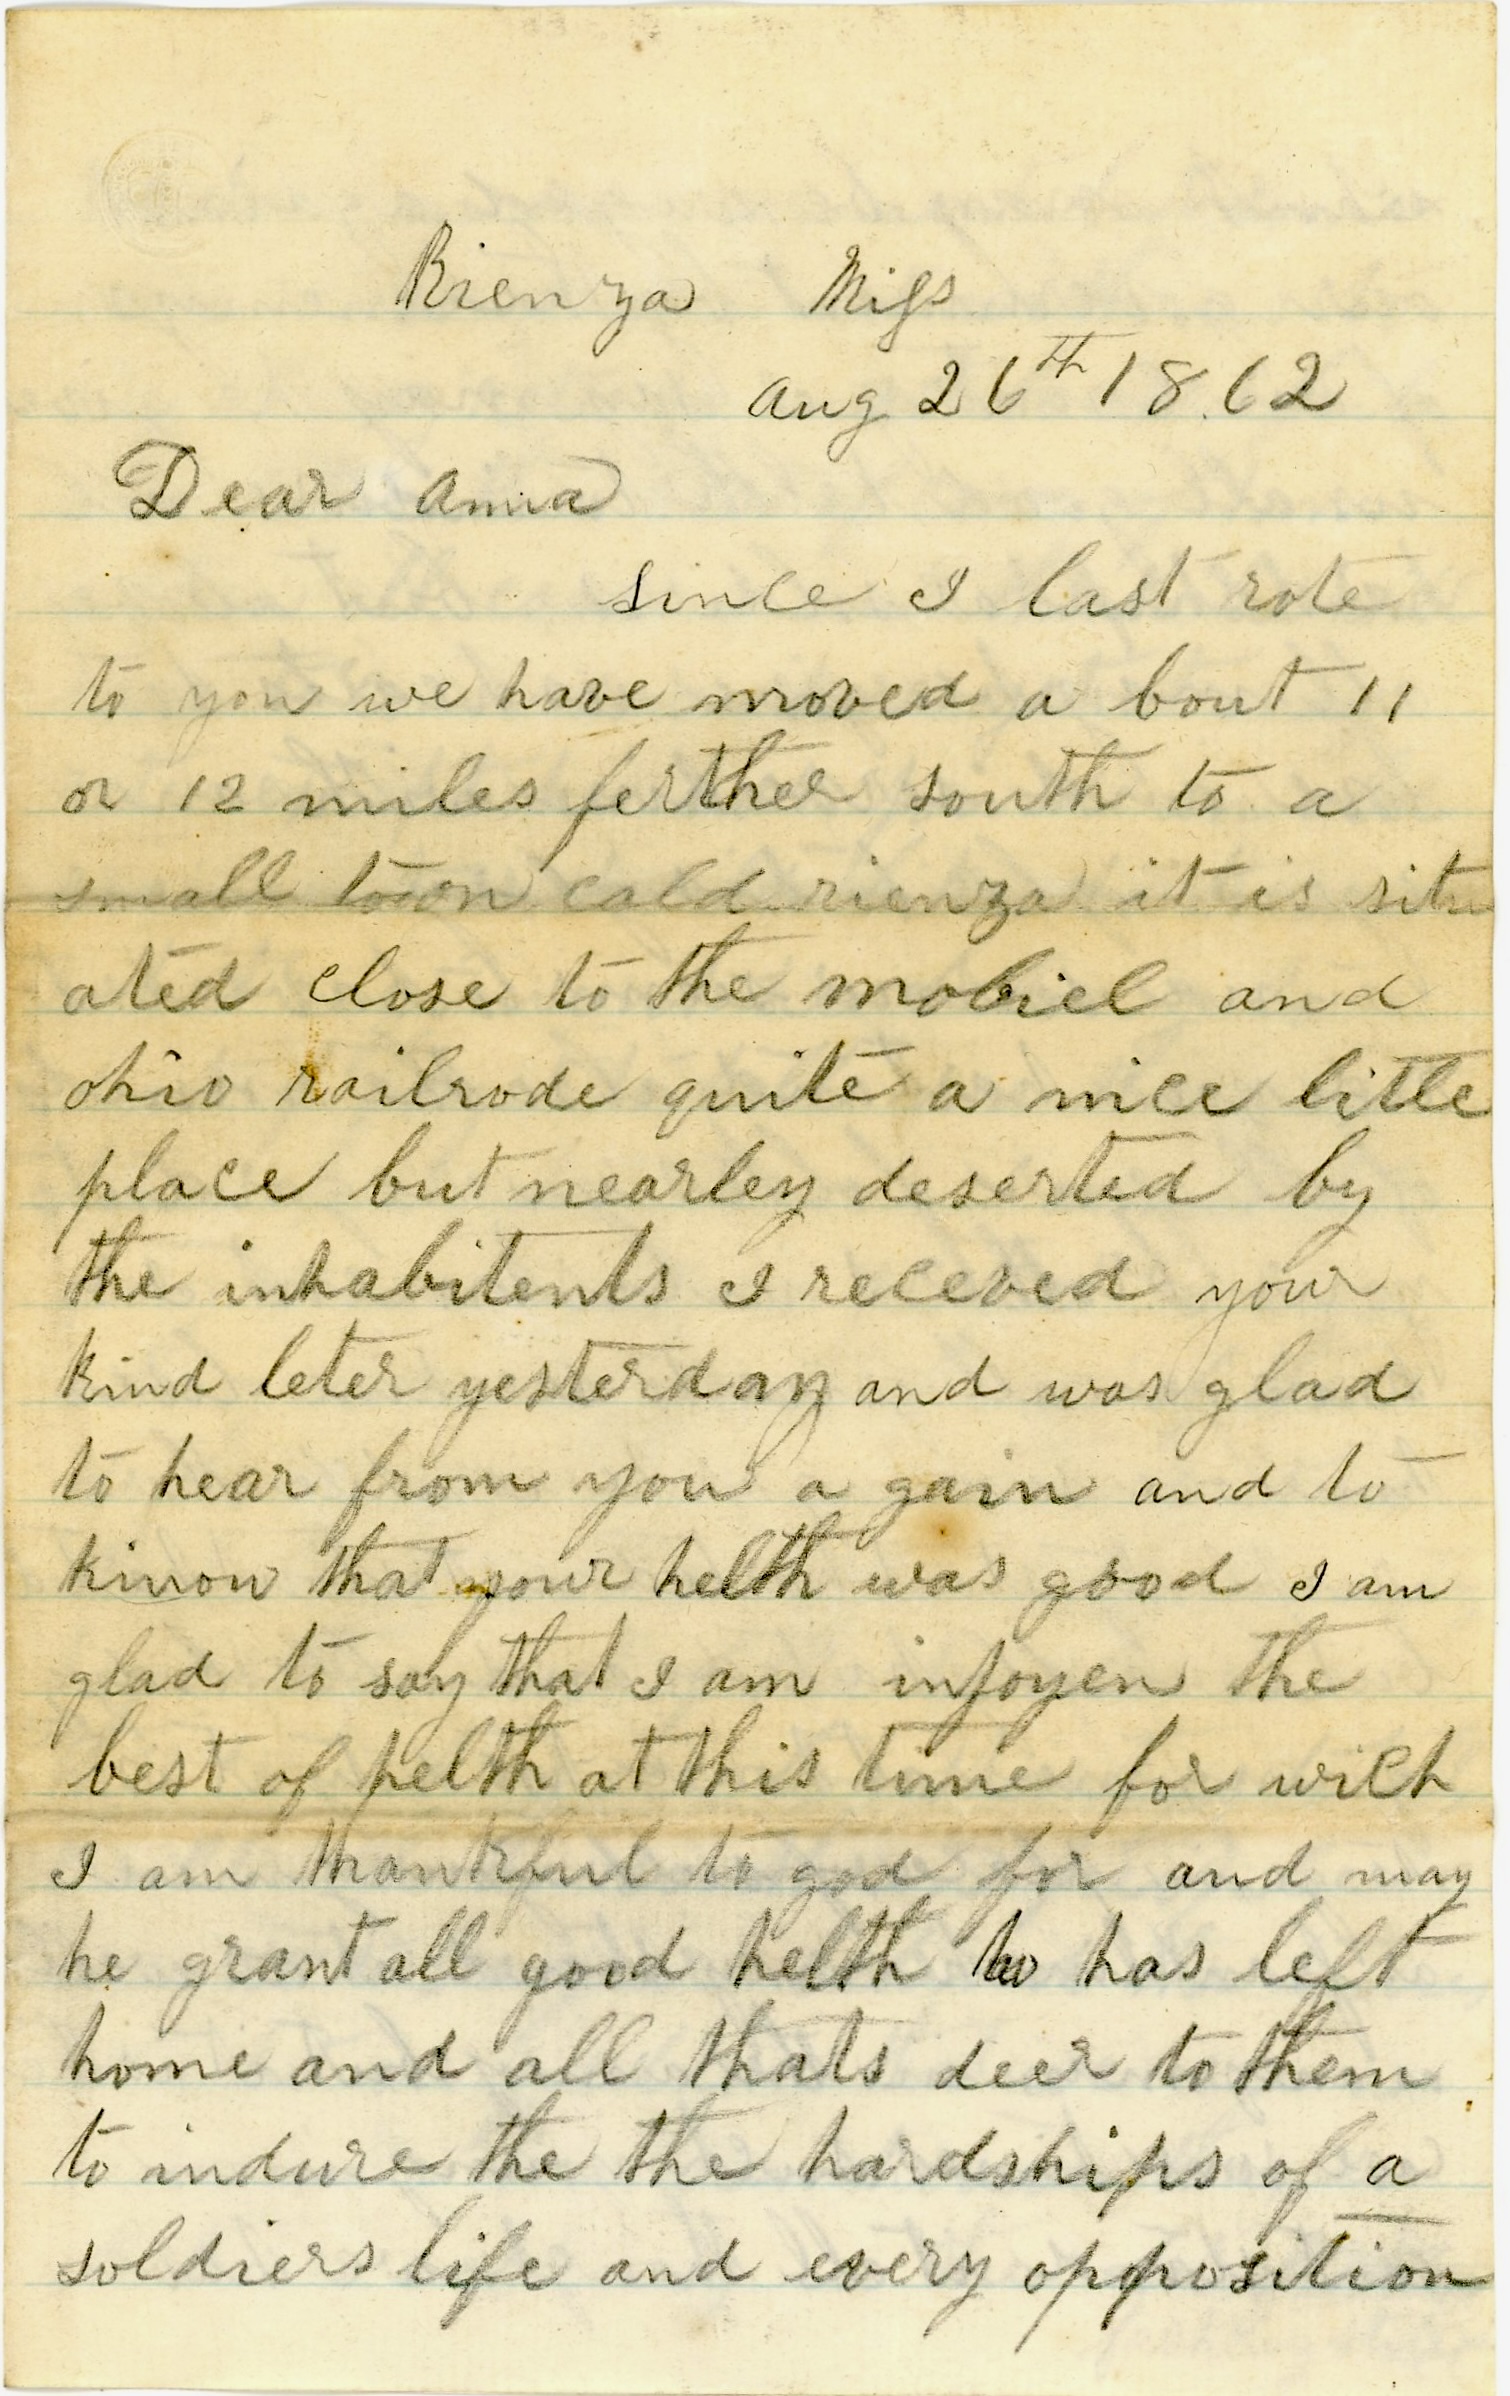 Rienza Miss
Aug 26th 1862
Dear Anna
since I last rote
to you we have moved a bout 11
or 12 miles ferther south to a
small town cald rienza it is situ
ated close to the mobiel and
ohio railrode quite a nice little
place but nearley deserted by
the inhabitents I receved your
kind leter yesterday and was glad
to hear from you a gain and to
know that your helth was good I am
glad to say that I am injoyen the
best of helth at this time for wich
I am thankful to god for and may
he grant all good helth ho has left
home and all thats deer to them
to indure the the hardships of a
soldiers life and every opposition